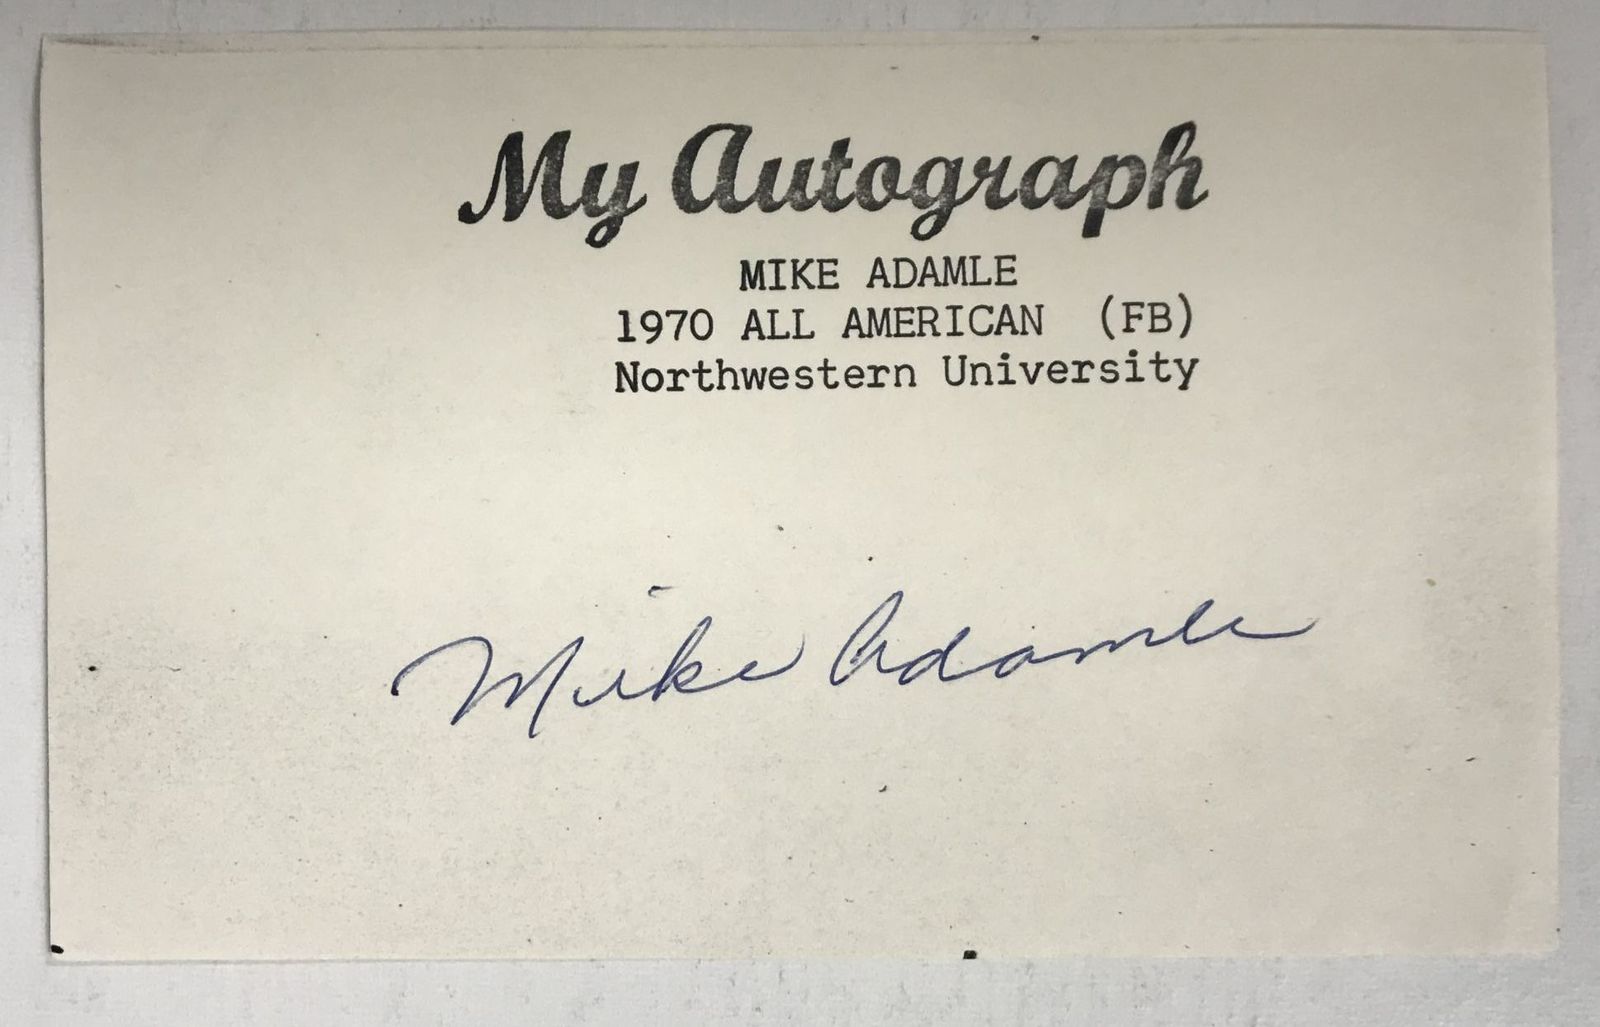 My Autograph
MIKE ADAMLE
1970 ALL AMERICAN (FB)
Northwestern University
Mike Adamle